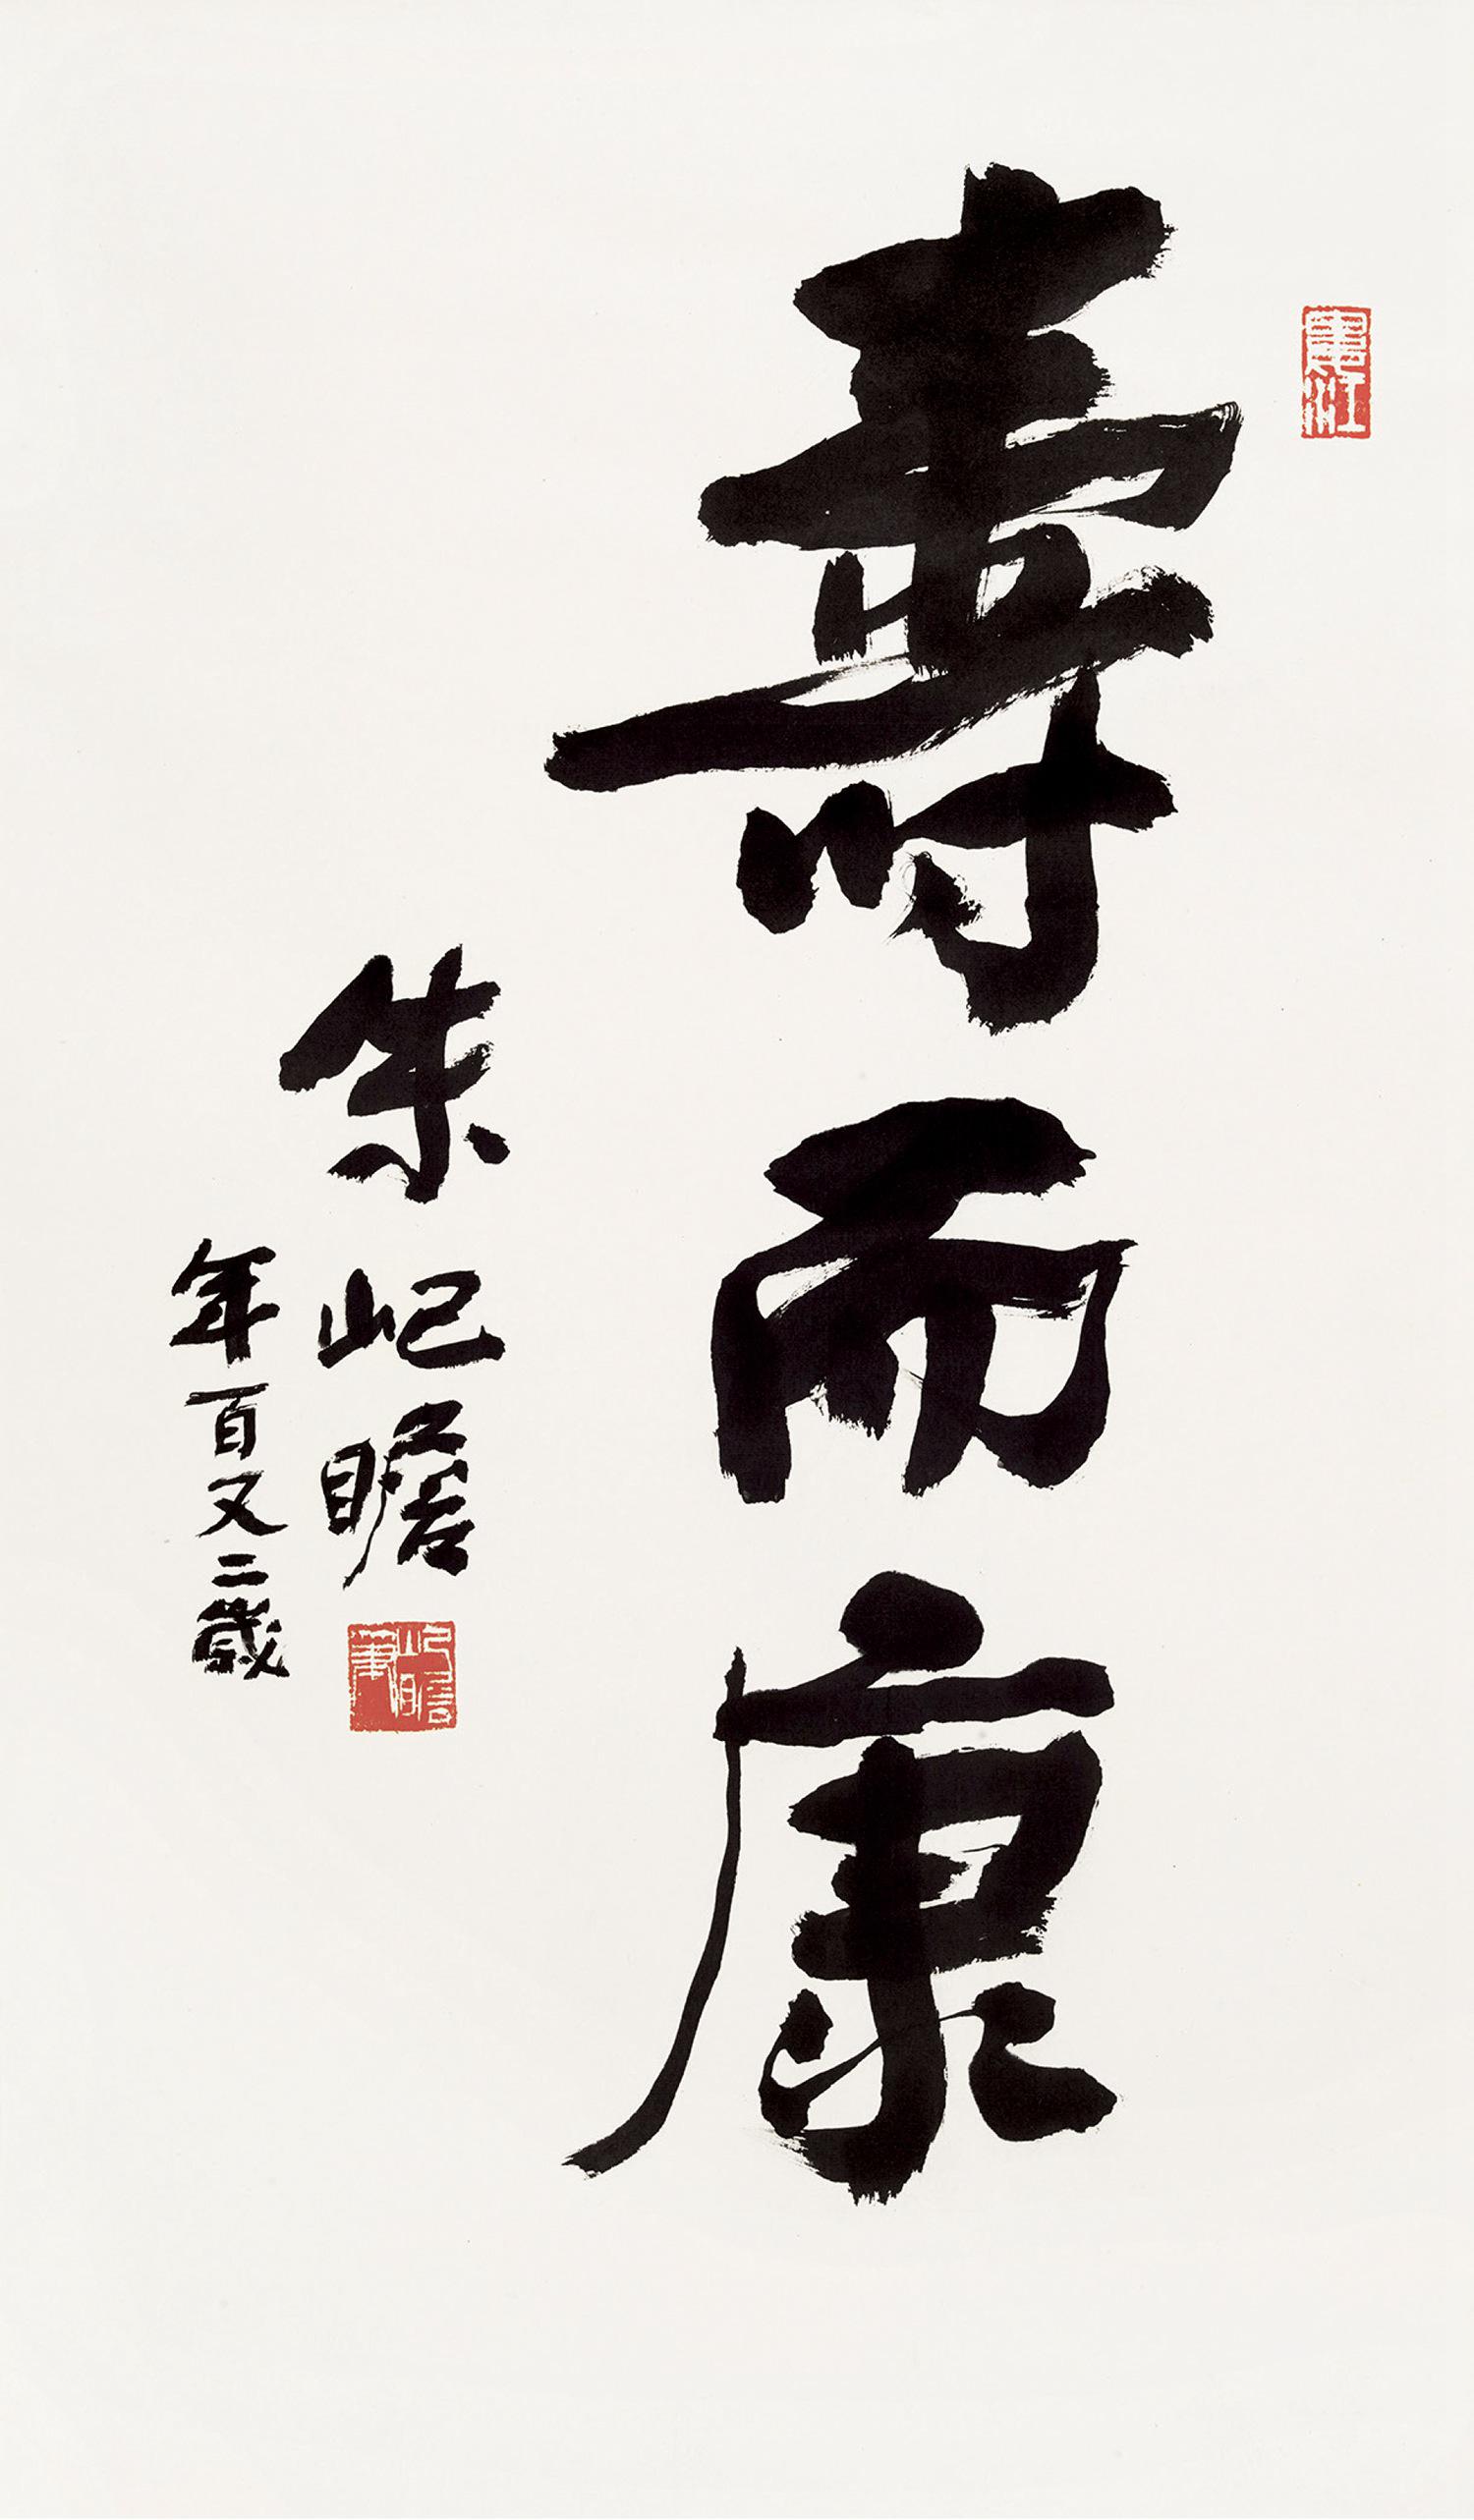 壽而康
朱屺瞻
年百又二歲